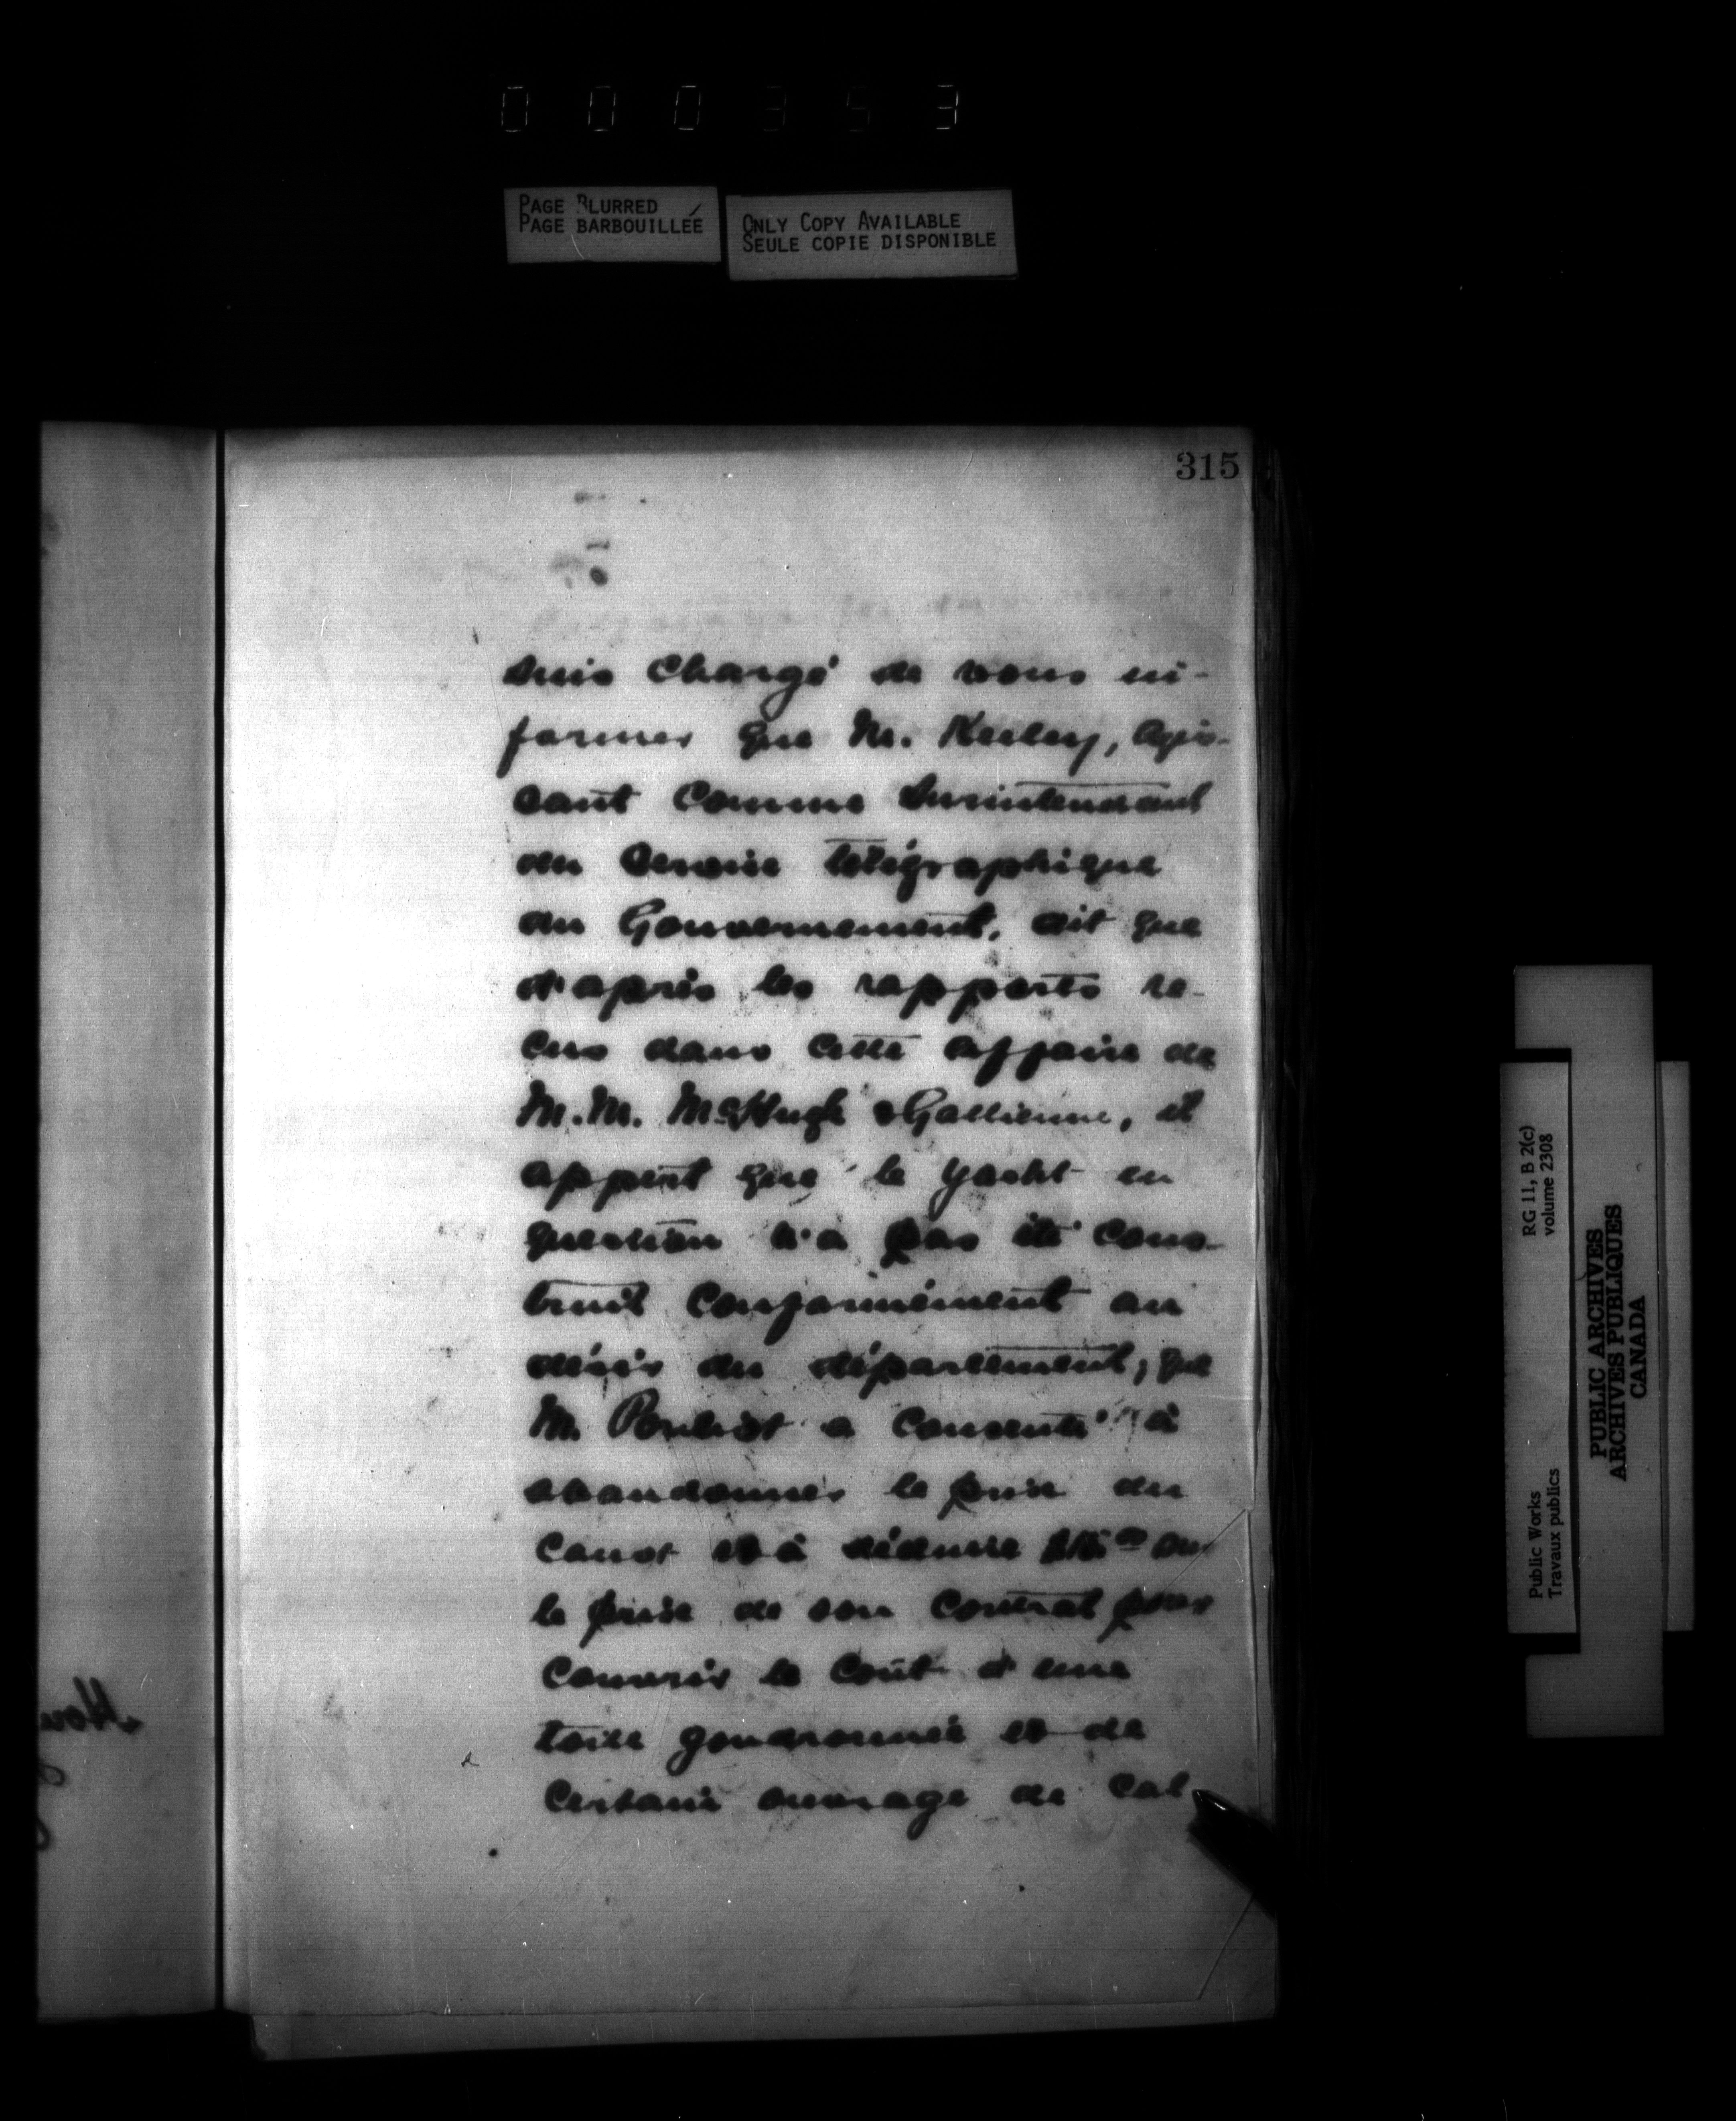 000353
PAGE BLURRED
PAGE BARBOUILLÉE
ONLY COPY AVAILABLE
SEULE COPIE DISPONIBLE
315
suis chargé de vous in-
former que M. Keeley, agis-
sant comme Surintendant
du Service télégraphique
du Gouvernement, dit que
d'après les rapports re-
çus dans cette affaire de
M.M. McHugh & Gallienne, il
appert que le yacht en
question n'a pas été cons-
truit conformément au
désir du département; que
M. Pouliot a consenti à
abandonner le prix du
canot et à déduire sur
le prix de son contrat pour
couvrir le coût d'une
toile goudronnée et de
certain ouvrage de cal
RG 11, B 2(c)
volume 2308
Public Works
Travaux publics
PUBLIC ARCHIVES
ARCHIVES PUBLIQUES
CANADA